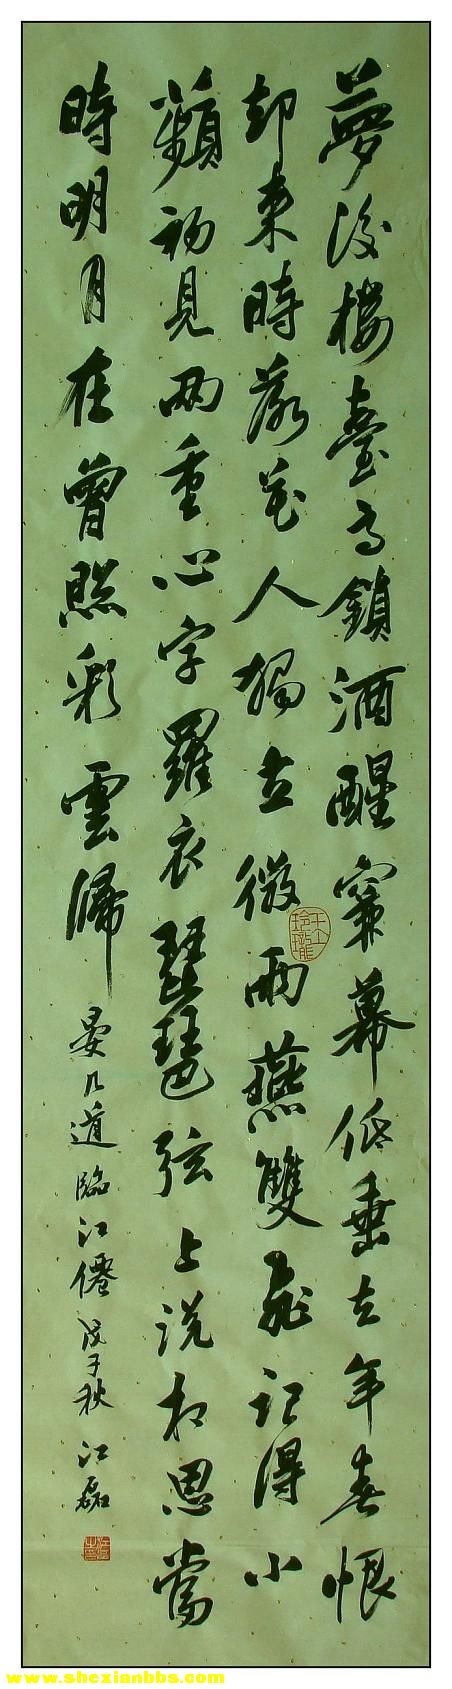 夢後樓臺高鎖酒醒簾幕低垂去年春恨
却來時落花人獨立微雨燕雙飛記得小
蘋初見兩重心字羅衣琵琶弦上説相思當
時明月在曾照彩雲歸 晏几道臨江僊 戊子秋 江磊
玲瓏
www.shexianbbs.com